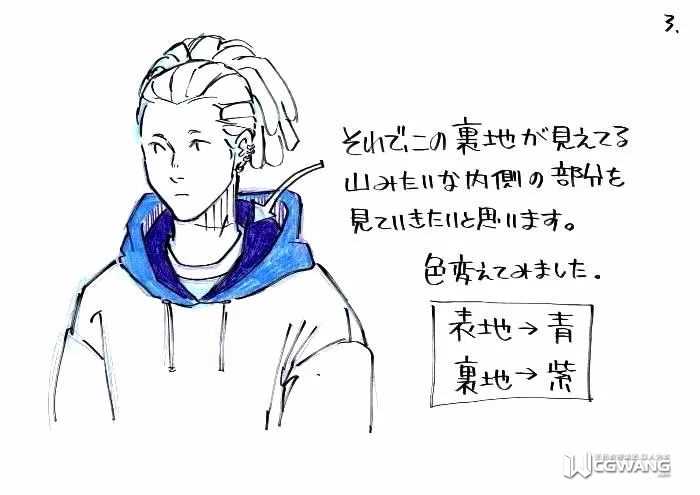 3.
それで、この裏地が見えてる
山みたいな内側の部分を
見ていきたいと思います。
色変えてみました.
表地→青
裏地→紫
CGWANG